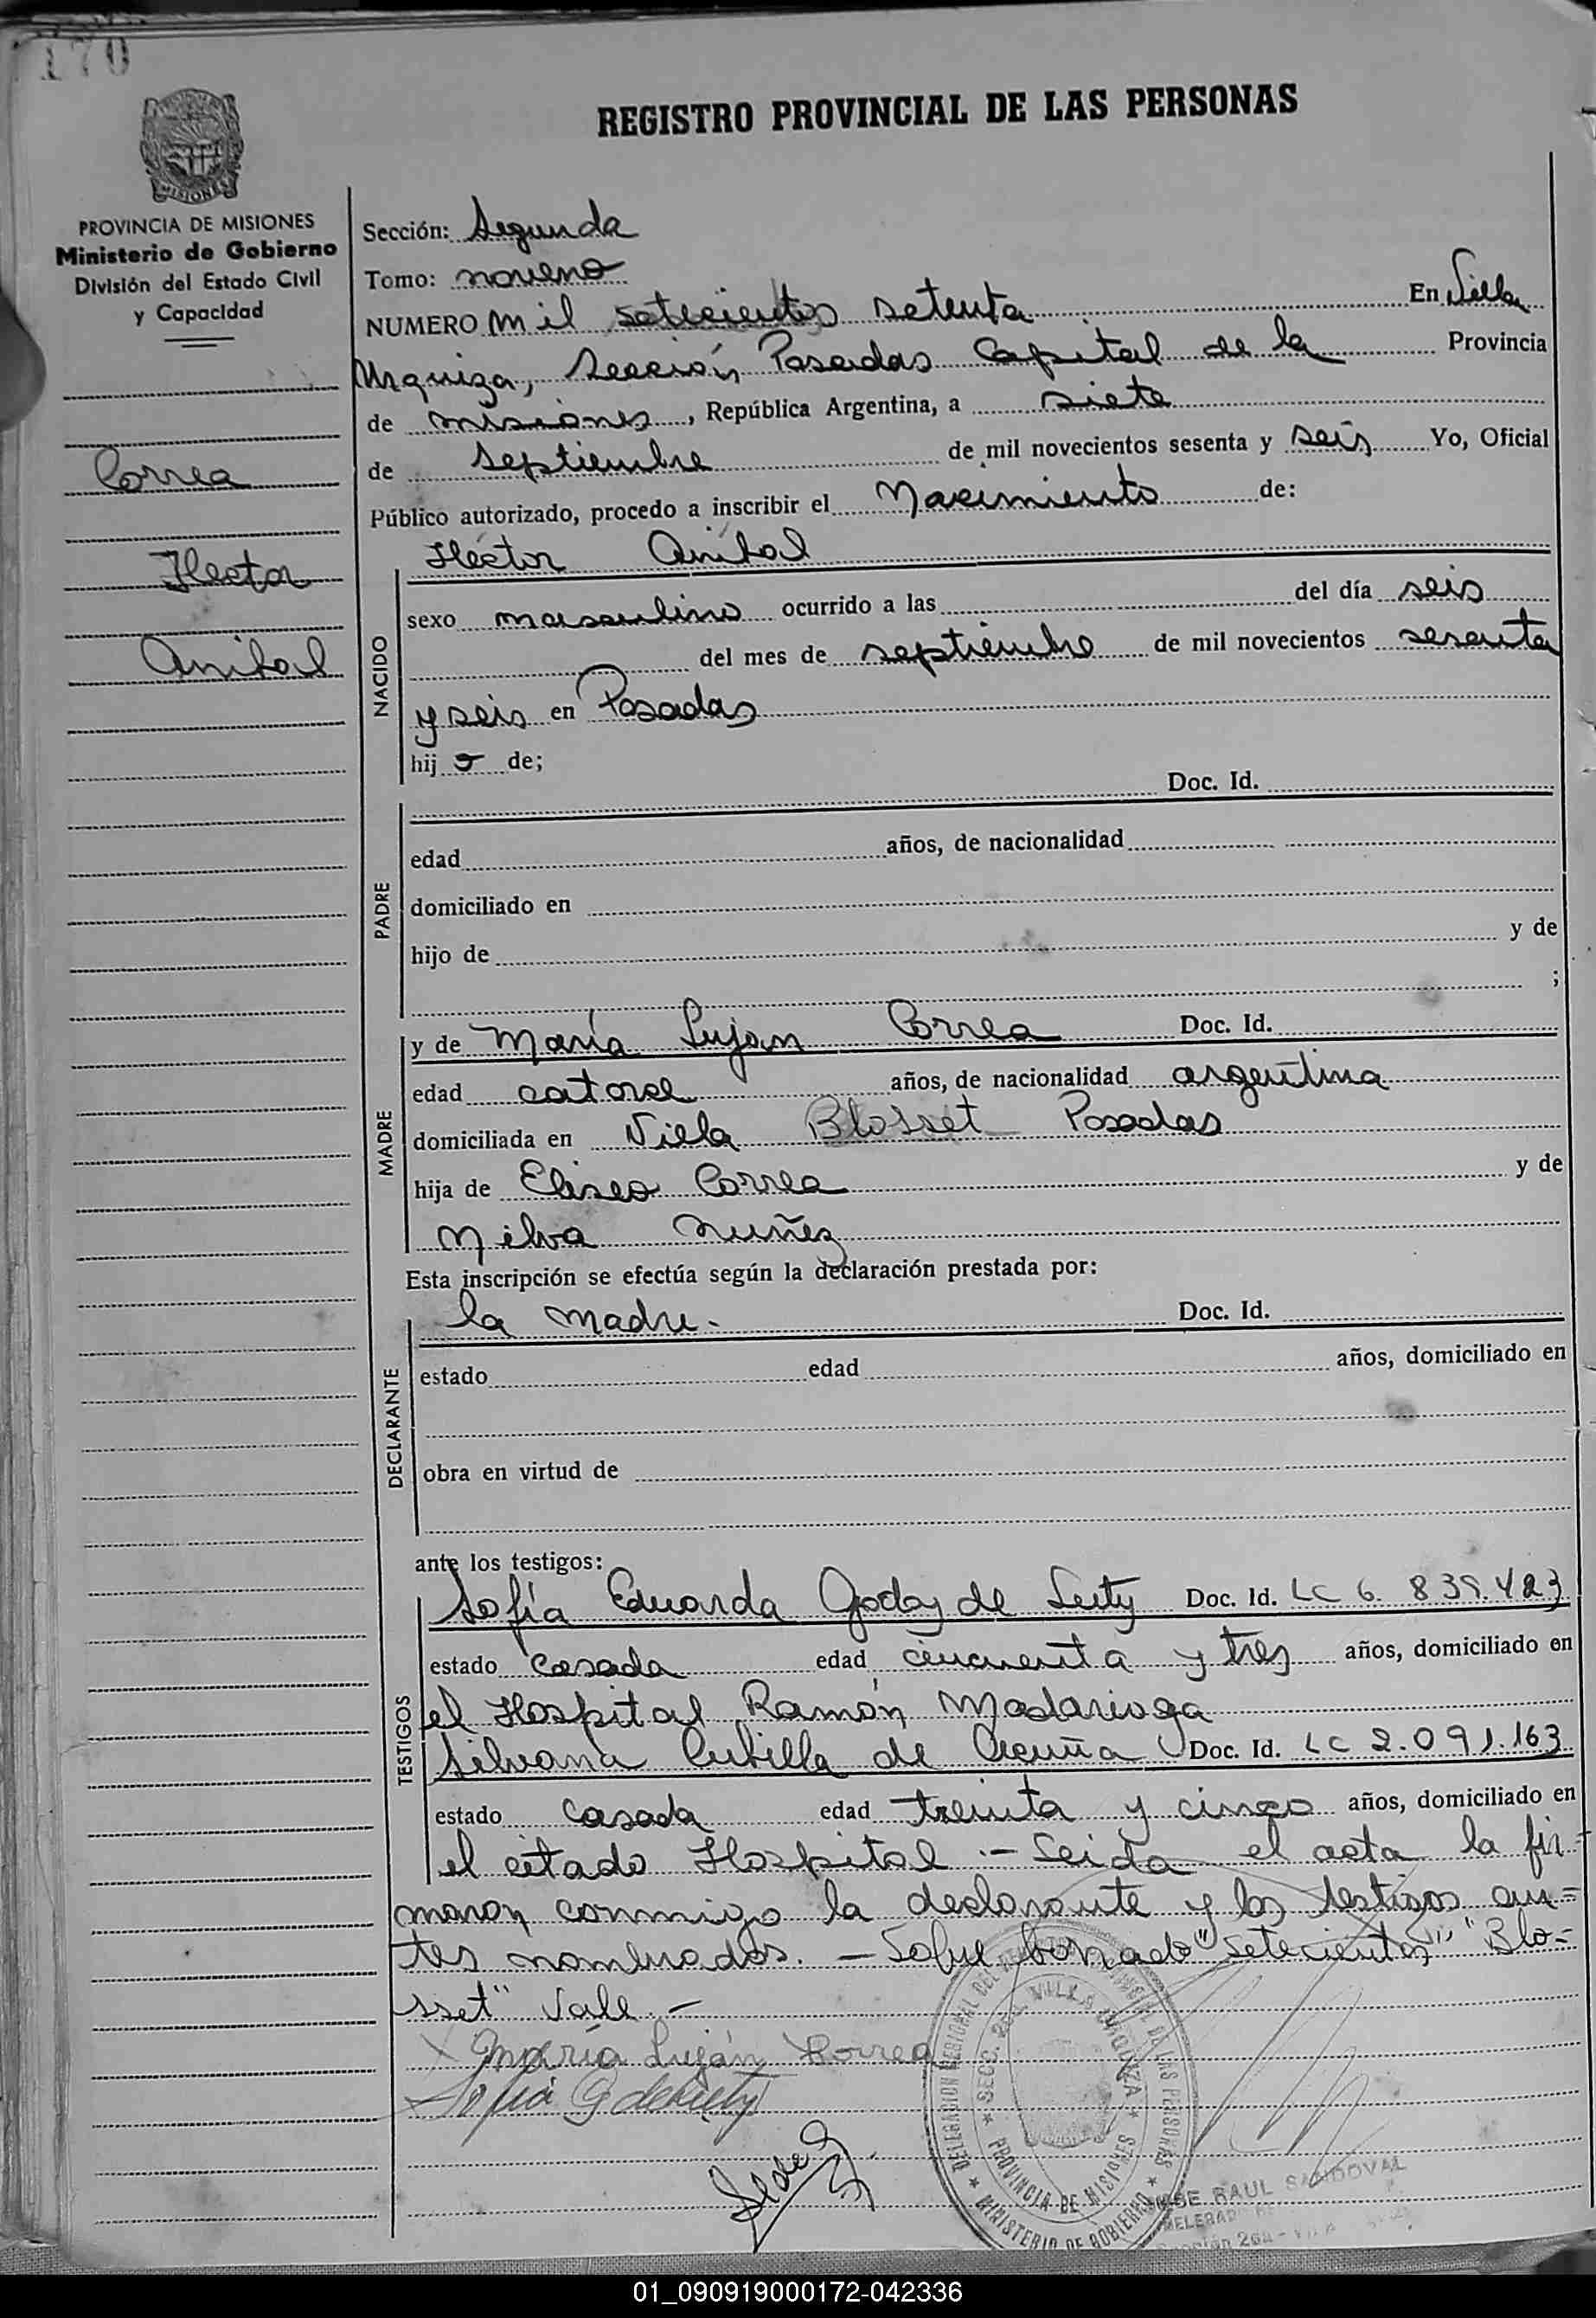 170
REGISTRO PROVINCIAL DE LAS PERSONAS
MISIONES
PROVINCIA DE MISIONES
Ministerio de Gobierno
División del Estado Civil
y Capacidad
Correa
Hector
Anibal
Sección: Segunda
Tomo: noveno
NUMERO mil setecientos setenta En Villa
Urquiza, Sección Posadas Capital de la Provincia
de misiones, República Argentina, a siete
de septiembre de mil novecientos sesenta y seis Yo, Oficial
Público autorizado, procedo a inscribir el Nacimiento de:
Héctor Aníbal
NACIDO
sexo masculino ocurrido a las del día seis
del mes de septiembre de mil novecientos sesenta
y seis en Posadas
hijo de;
PADRE
Doc. Id.
edad años, de nacionalidad
domiciliado en
hijo de y de
;
MADRE
y de María Lujan Correa Doc. Id.
edad catorce años, de nacionalidad argentina
domiciliada en Villa Blosset Posadas
hija de Eliseo Correa y de
Milva Nuñez
Esta inscripción se efectúa según la declaración prestada por:
DECLARANTE
la madre.- Doc. Id.
estado edad años, domiciliado en
obra en virtud de
ante los testigos:
TESTIGOS
Sofía Eduarda Godoy de Doc. Id. LC 6. 839.423
estado casada edad cincuenta y tres años, domiciliado en
el Hospital Ramón Madariaga
Silvana Cubilla de Acuña Doc. Id. LC 2.091.163
estado casada edad treinta y cinco años, domiciliado en
el citado Hospital.- Leida el acta la fir=
maron conmigo la declarante y los testigos an=
tes nombrados.- Sobre borrado "setecientos" "Blo=
sset" Vale.-
María Luján Correa
Sofía G de
DELEGACION REGIONAL DEL REGISTRO PROVINCIAL DE LAS PERSONAS
SECC. 2da. VILLA URQUIZA
PROVINCIA DE MISIONES
MINISTERIO DE GOBIERNO
JOSE RAUL SANDOVAL
01_090919000172-042336